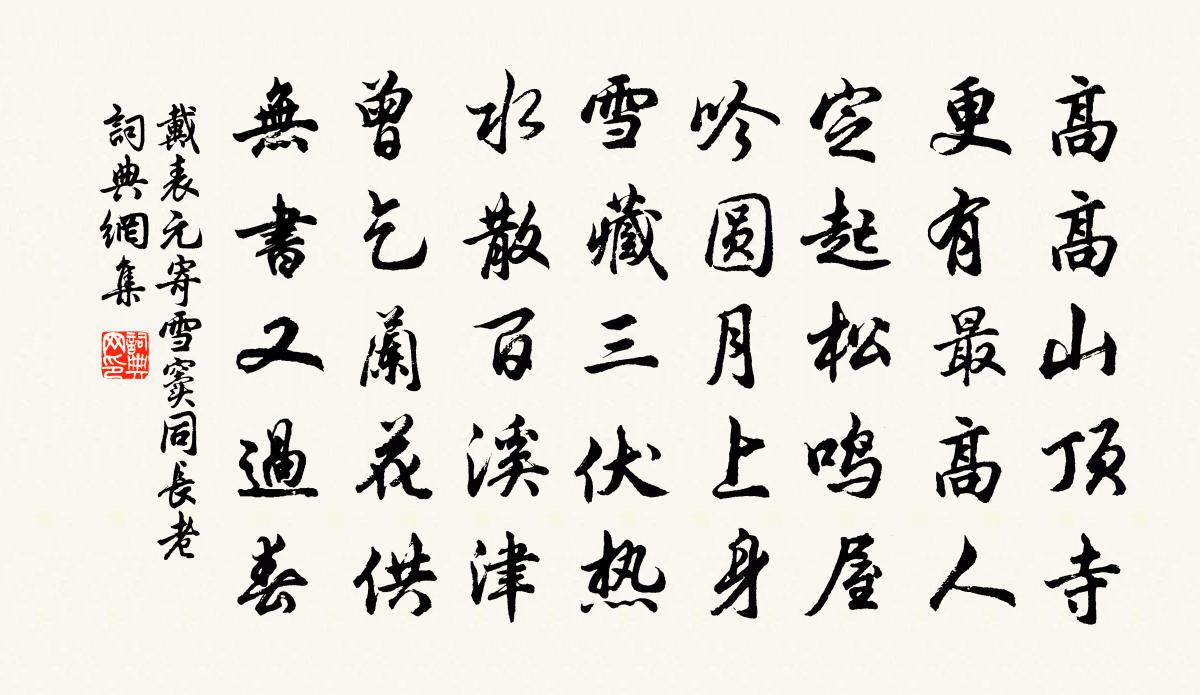 高高山顶寺
更有最高人
定起松鸣屋
吟圆月上身
雪藏三伏热
水散百溪津
曾乞蘭花供
無書又過春
戴表元寄雪窦同長老
詞典網集
詞典網印